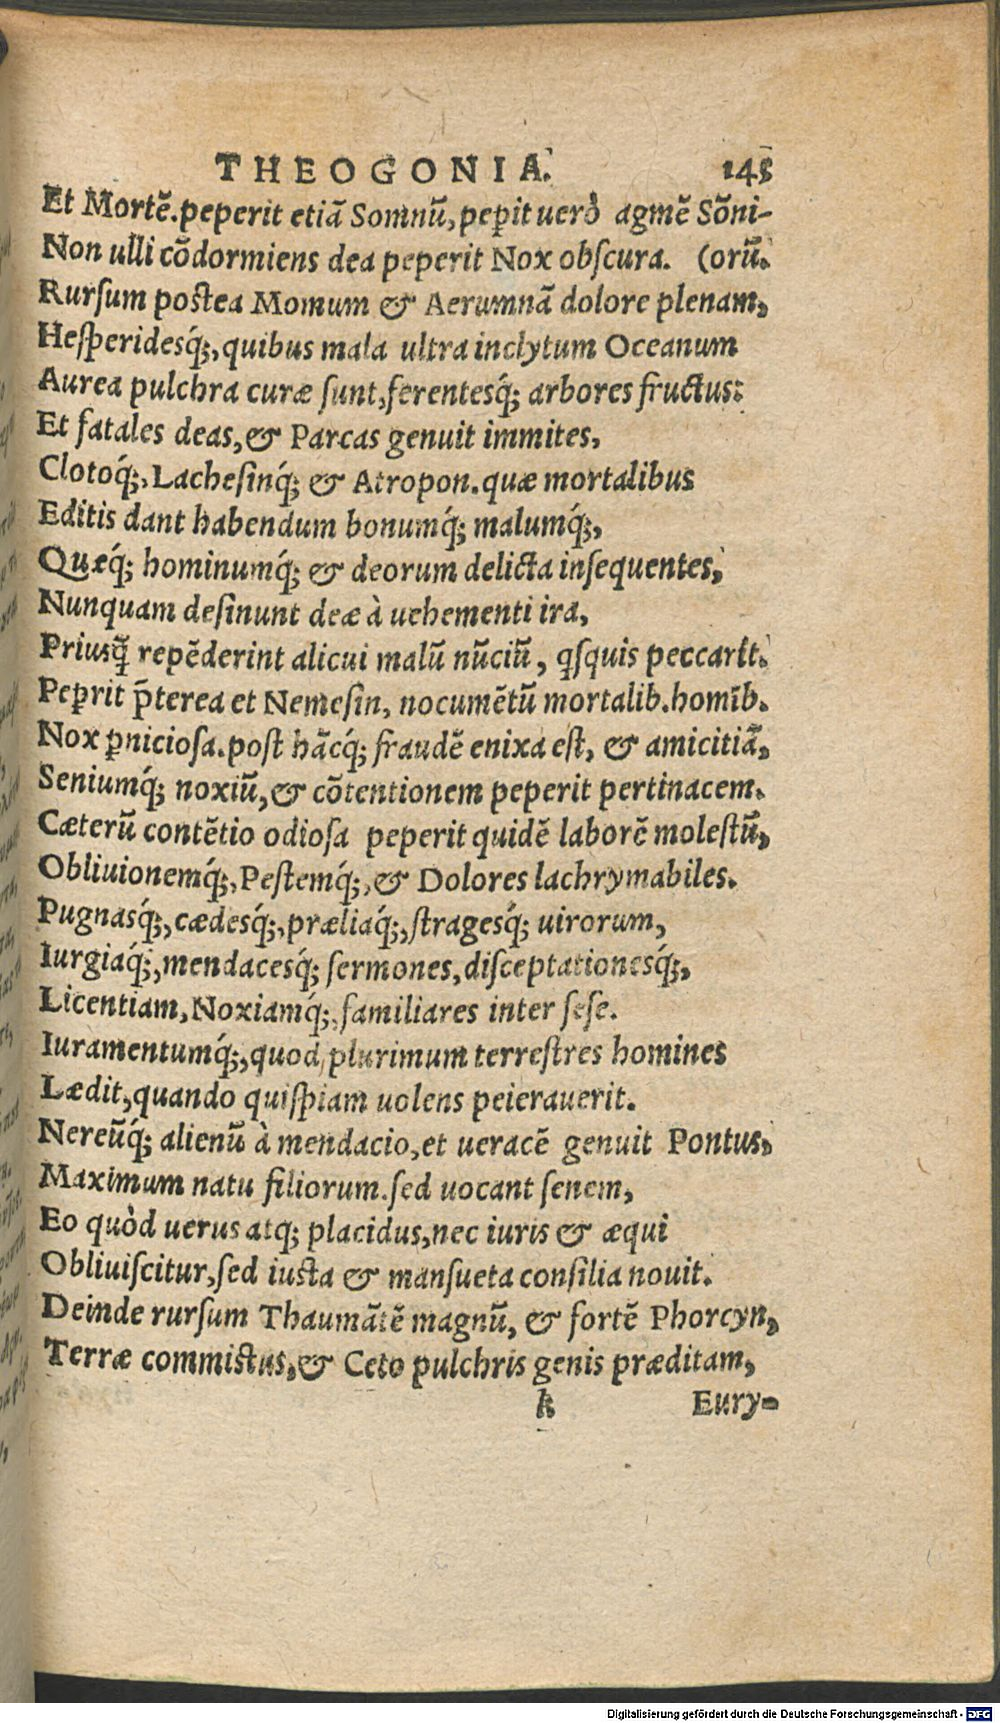 THEOGONIA. 145
Et Mortẽ. peperit etiã Somnũ, peꝑit uerò agmẽ Sõni-
Non ulli cõdormiens dea peperit Nox obſcura. (orũ.
Rurſum poſtea Momum & Aerumnã dolore plenam,
Heſperidesq́;, quibus mala ultra inclytum Oceanum
Aurea pulchra curæ ſunt, ferentesq́; arbores fructus:
Et fatales deas, & Parcas genuit immites,
Clotoq́;, Lacheſinq́; & Atropon. quæ mortalibus
Editis dant habendum bonumq́; malumq́;,
Quæq́; hominumq́; & deorum delicta inſequentes,
Nunquam deſinunt deæ à uehementi ira,
Priusq̃ repẽderint alicui malũ nũciũ, qſquis peccarit.
Peꝑrit p̃terea et Nemeſin, nocumẽtũ mortalib. homĩb.
Nox ꝑnicioſa. poſt hãcq́; fraudẽ enixa eſt, & amicitiã,
Seniumq́; noxiũ, & cõtentionem peperit pertinacem.
Cæterũ contẽtio odioſa peperit quidẽ laborẽ moleſtũ,
Obliuionemq́;, Peſtemq́;, & Dolores lachrymabiles.
Pugnasq́;, cædesq́;, præliaq́;, ſtragesq́; uirorum,
Iurgiaq́;, mendacesq́; ſermones, diſceptationesq́;,
Licentiam, Noxiamq́;, familiares inter ſeſe.
Iuramentumq́;, quod plurimum terreſtres homines
Lædit, quando quiſpiam uolens peierauerit.
Nereũq́; alienũ à mendacio, et ueracẽ genuit Pontus,
Maximum natu filiorum. ſed uocant ſenem,
Eo quòd uerus atq; placidus, nec iuris & æqui
Obliuiſcitur, ſed iuſta & manſueta conſilia nouit.
Deinde rurſum Thaumãtẽ magnũ, & fortẽ Phorcyn,
Terræ commiſtus, & Ceto pulchris genis præditam,
k Eury-
Digitalisierung gefördert durch die Deutsche Forschungsgemeinschaft - DFG